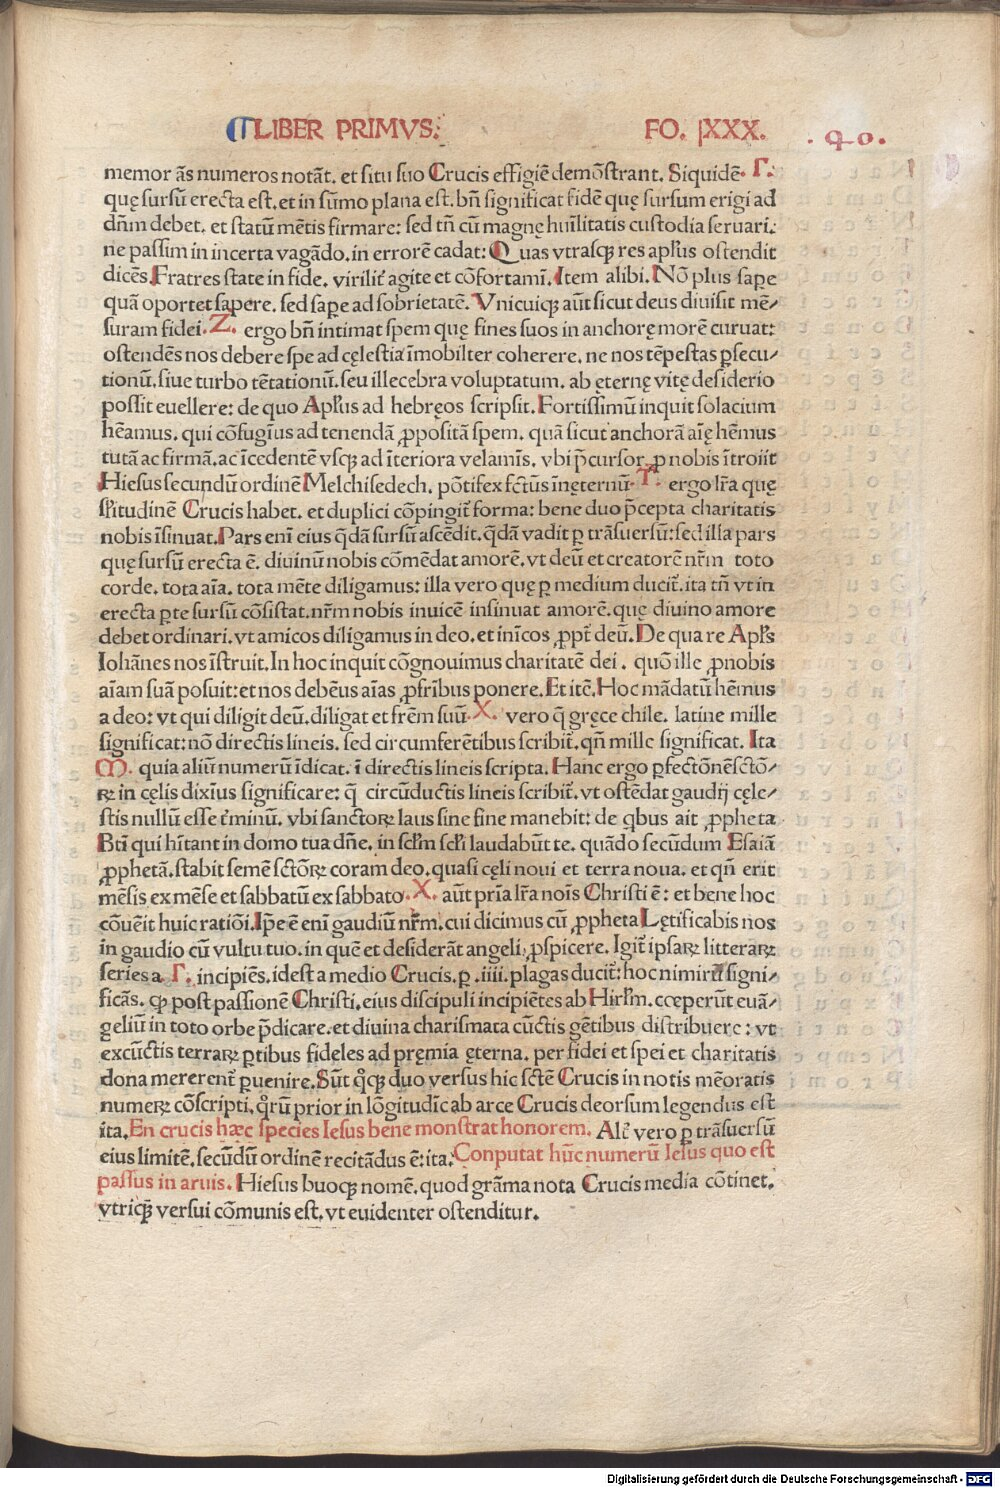 LIBER PRIMVS. FO. XXX. .40.
memor ãs numeros notãt. et situ suo Crucis effigiē demõstrant. Siquidē. Γ.
quę sursũ erecta est. et in sũmo plana est. bñ significat fidē quę sursum erigi ad
dñm debet. et statũ mētis firmare: sed tñ cũ magnę huĩlitatis custodia seruari.
ne passim in incerta vagãdo. in errorē cadat: Quas vtrasꝗ res aplũs ostendit
dicēs. Fratres state in fide. virilit̃ agite et cõfortamĩ. Item alibi. Nõ plus sapꝫe
quã oportet sapere. sed sapꝑe ad sobrietatē. Vnicuiqꝫ aũt sicut deus diuisit mē/
suram fidei. Z. ergo bñ intimat spem quę fines suos in anchorę morē curuat:
ostendēs nos debere spe ad cęlestia ĩmobilter coherere. ne nos tēpestas ꝑsecu/
tionũ. siue turbo tētationũ. seu illecebra voluptatum. ab ęternę vitę desiderio
possit euellere: de quo Aplũs ad hebręos scripsit. Fortissimũ inquit solacium
hēamus. qui cõfugĩus ad tenendã ꝓpositã spem. quã sicut anchorã aĩę hēmus
tutã ac firmã. ac ĩcedentē vsqꝫ ad ĩteriora velamĩs. vbi p̃cursor ꝓ nobis ĩtroiit
Hiesus secundũ ordinē Melchisedech. põtifex fct̃us ĩnęternũ. T. ergo lr̃a quę
sĩl̃itudinē Crucis habet. et duplici cõpingit̃ forma: bene duo p̃cepta charitatis
nobis ĩsinuat. Pars enĩ eius q̃dã sursũ ascēdit. q̃dã vadit ꝑ trãsuersũ: sed illa pars
quę sursũ erecta ē. diuinũ nobis cõmēdat amorē. vt deũ et creatorē nr̃m toto
corde. tota aĩa. tota mēte diligamus: illa vero quę ꝑ medium ducit̃. ita tñ vt in
erecta ꝑte sursũ cõsistat. nr̃m nobis inuicē insinuat amorē. quę diuino amore
debet ordinari. vt amicos diligamus in deo. et inĩcos ꝓpt̃ deũ. De qua re Apl̃s
Iohãnes nos ĩstruit. In hoc inquit cõgnouimus charitatē dei. quõ ille ꝓ nobis
aĩam suã posuit: et nos debēus aĩas ꝓ fr̃ibus ponere. Et itē. Hoc mãdatũ hēmus
a deo: vt qui diligit deũ. diligat et fr̃em suũ. X. vero q̃ gręce chile. latine mille
significat: nõ directis lineis. sed circumferētibus scribit̃. qñ mille significat. Ita
M. quia aliũ numerũ ĩdicat. ĩ directis lineis scripta. Hanc ergo ꝑfectõnē sctõ/
rꝫ in cęlis dixĩus significare: q̃ circũductis lineis scribit̃. vt ostēdat gaudij cęle/
stis nullũ esse t̃minũ. vbi sanctorꝫ laus sine fine manebit: de qbus ait ꝓpheta
Bt̃i qui hĩtant in domo tua dñe. in scl̃m scl̃i laudabũt te. quãdo secũdum Esaiã
ꝓphetã. stabit semē sctõrꝫ coram deo. quasi cęli noui et terra noua. et qñ erit
mēsis ex mēse et sabbatũ ex sabbato. X. aũt pr̃ia lr̃a noĩs Christi ē: et bene hoc
cõuēit huic ratiõi. Ip̃e ē enĩ gaudiũ nr̃m. cui dicimus cũ ꝓpheta Lętificabis nos
in gaudio cũ vultu tuo. in quē et desiderãt angeli ꝓspicere. Igit̃ ipsarꝫ litterarꝫ
series a. Γ. incipiēs. idest a medio Crucis. ꝑ .iiii. plagas ducit̃: hoc nimirũ signi/
ficãs. qꝫ post passionē Christi. eius discipuli incipiētes ab Hirl̃m. cceperũt euã/
geliũ in toto orbe p̃dicare. et diuina charismata cũctis gētibus distribuere: vt
ex cũctis terrarꝫ ꝑtibus fideles ad pręmia ęterna. per fidei et spei et charitatis
dona mererent̃ ꝑuenire. Sũt qꝫ duo versus hic sctē Crucis in notis mēoratis
numerꝫ cõscripti. qr̃ũ prior in lõgitudĩe ab arce Crucis deorsum legendus est
ita. En crucis hæc species Iesus bene monstrat honorem. Alt̃ vero ꝑ trãsuersũ
eius limitē. secũdũ ordinē recitãdus ē: ita. Conputat hũc numerũ Iesus quo est
passus in aruis. Hiesus huoqꝫ nomē. quod grãma nota Crucis media cõtinet.
vtriqꝫ versui cõmunis est. vt euidenter ostenditur.
Digitalisierung gefördert durch die Deutsche Forschungsgemeinschaft - DFG